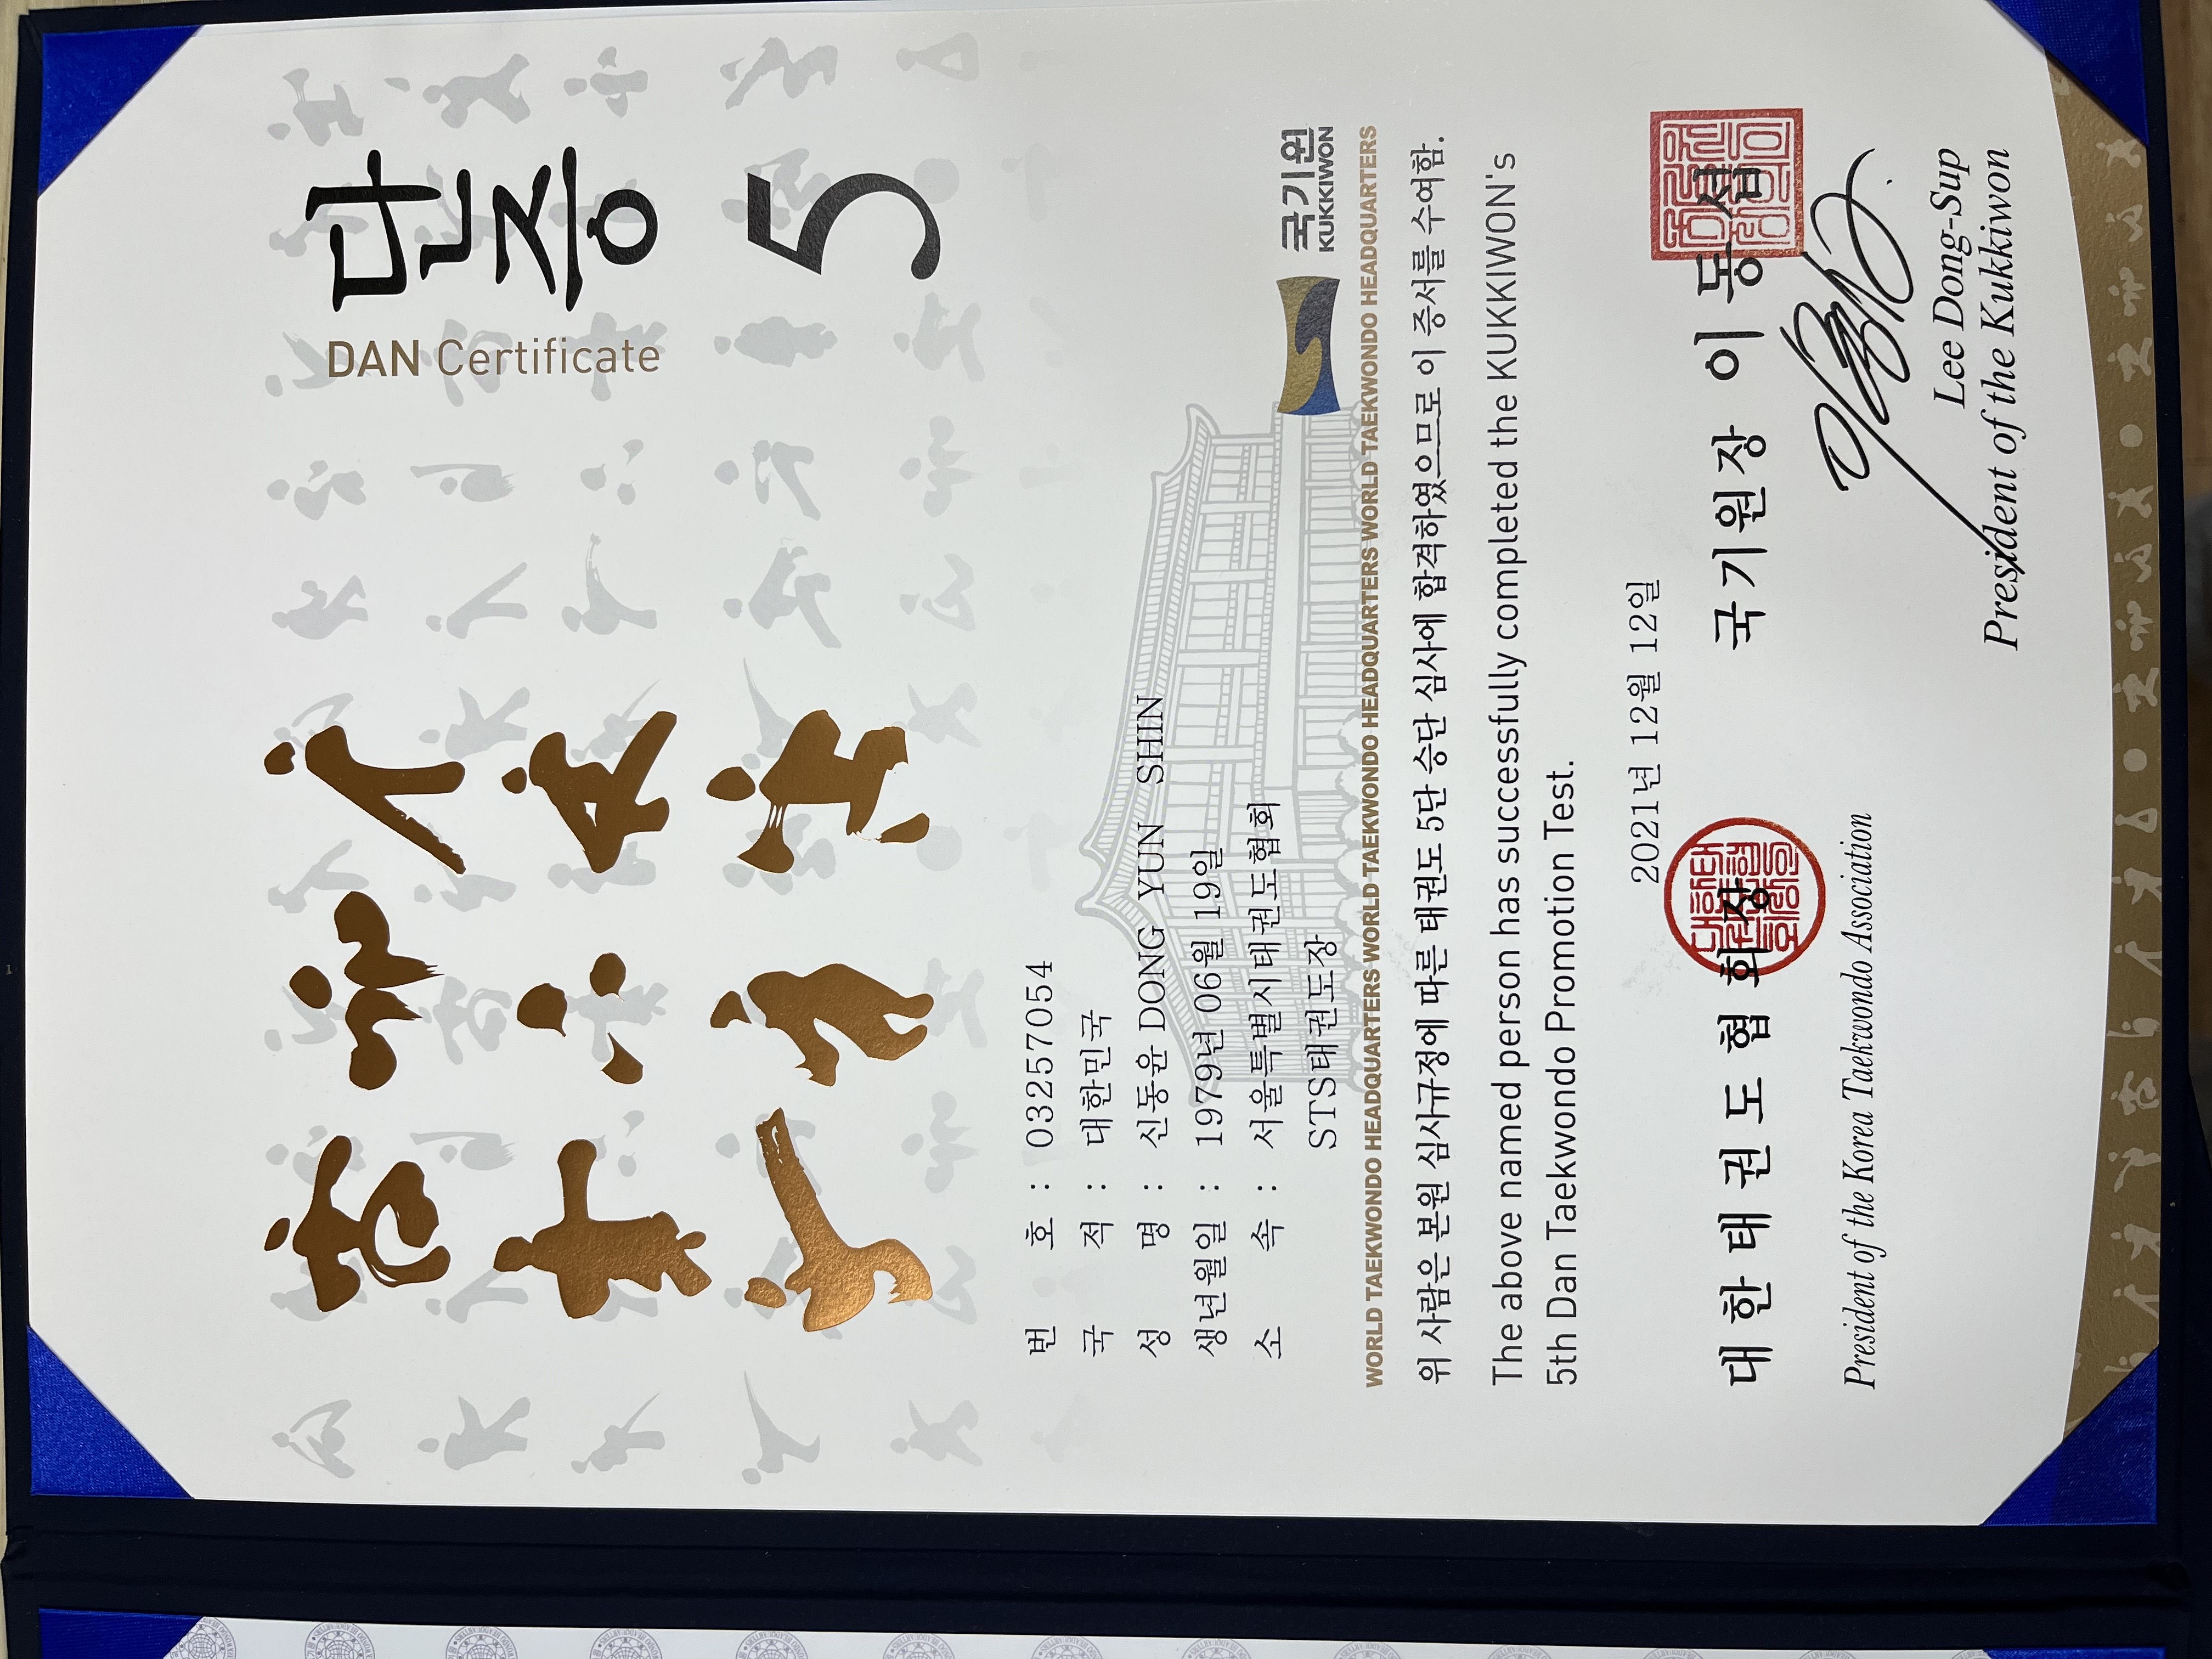 단증
DAN Certificate
5
번 호 : 03257054
국 적 : 대한민국
성 명 : 신동윤 DONG YUN SHIN
생년월일 : 1979년 06월 19일
소 속 : 서울특별시태권도협회
STS태권도장
국기원
KUKKIWON
WORLD TAEKWONDO HEADQUARTERS WORLD TAEKWONDO HEADQUARTERS WORLD TAEKWONDO HEADQUARTERS WORLD TAEKWONDO HEADQUARTERS
위 사람은 본원 심사규정에 따른 태권도 5단 승단 심사에 합격하였으므로 이 증서를 수여함.
The above named person has successfully completed the KUKKIWON's
5th Dan Taekwondo Promotion Test.
2021년 12월 12일
대한태권도협회장
President of the Korea Taekwondo Association
국기원장 이동섭
Lee Dong-Sup
President of the Kukkiwon